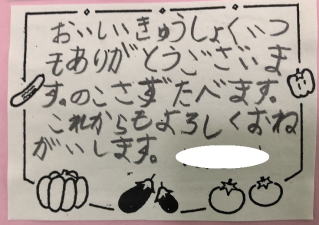 おいしいきゅうしょくいつ
もありがとうございま
す。のこさずたべます。
これからもよろしくおね
がいします。